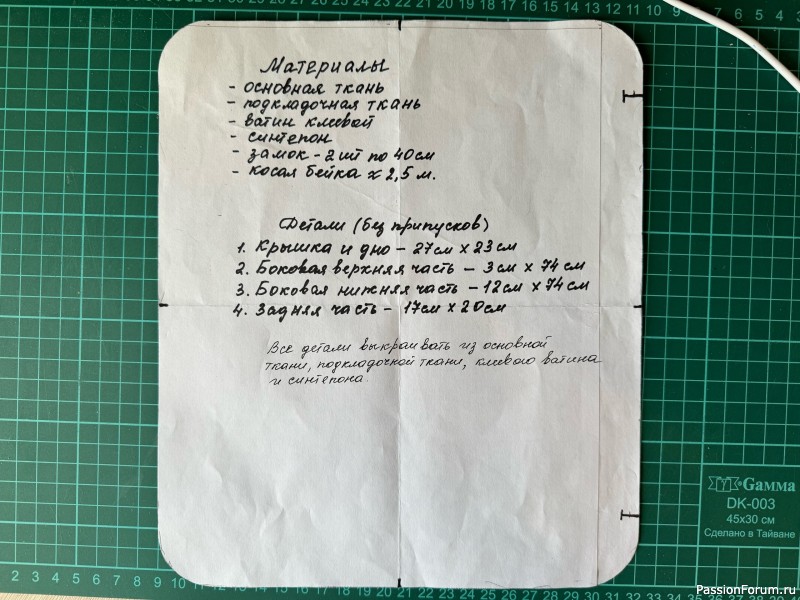 Материалы
- основная ткань
- подкладочная ткань
- ватин клеевой
- синтепон
- замок - 2 шт по 40 см
- косая бейка ≈ 2,5 м.
Детали (без припусков)
1. Крышка и дно - 27 см х 23 см
2. Боковая верхняя часть - 3 см х 74 см
3. Боковая нижняя часть - 12 см х 74 см
4. Задняя часть - 17 см х 20 см
Все детали выкраивать из основной
ткани, подкладочной ткани, клеевого ватина
и синтепона.
Gamma
DK-003
45x30 см
Сделано в Тайване
PassionForum.ru